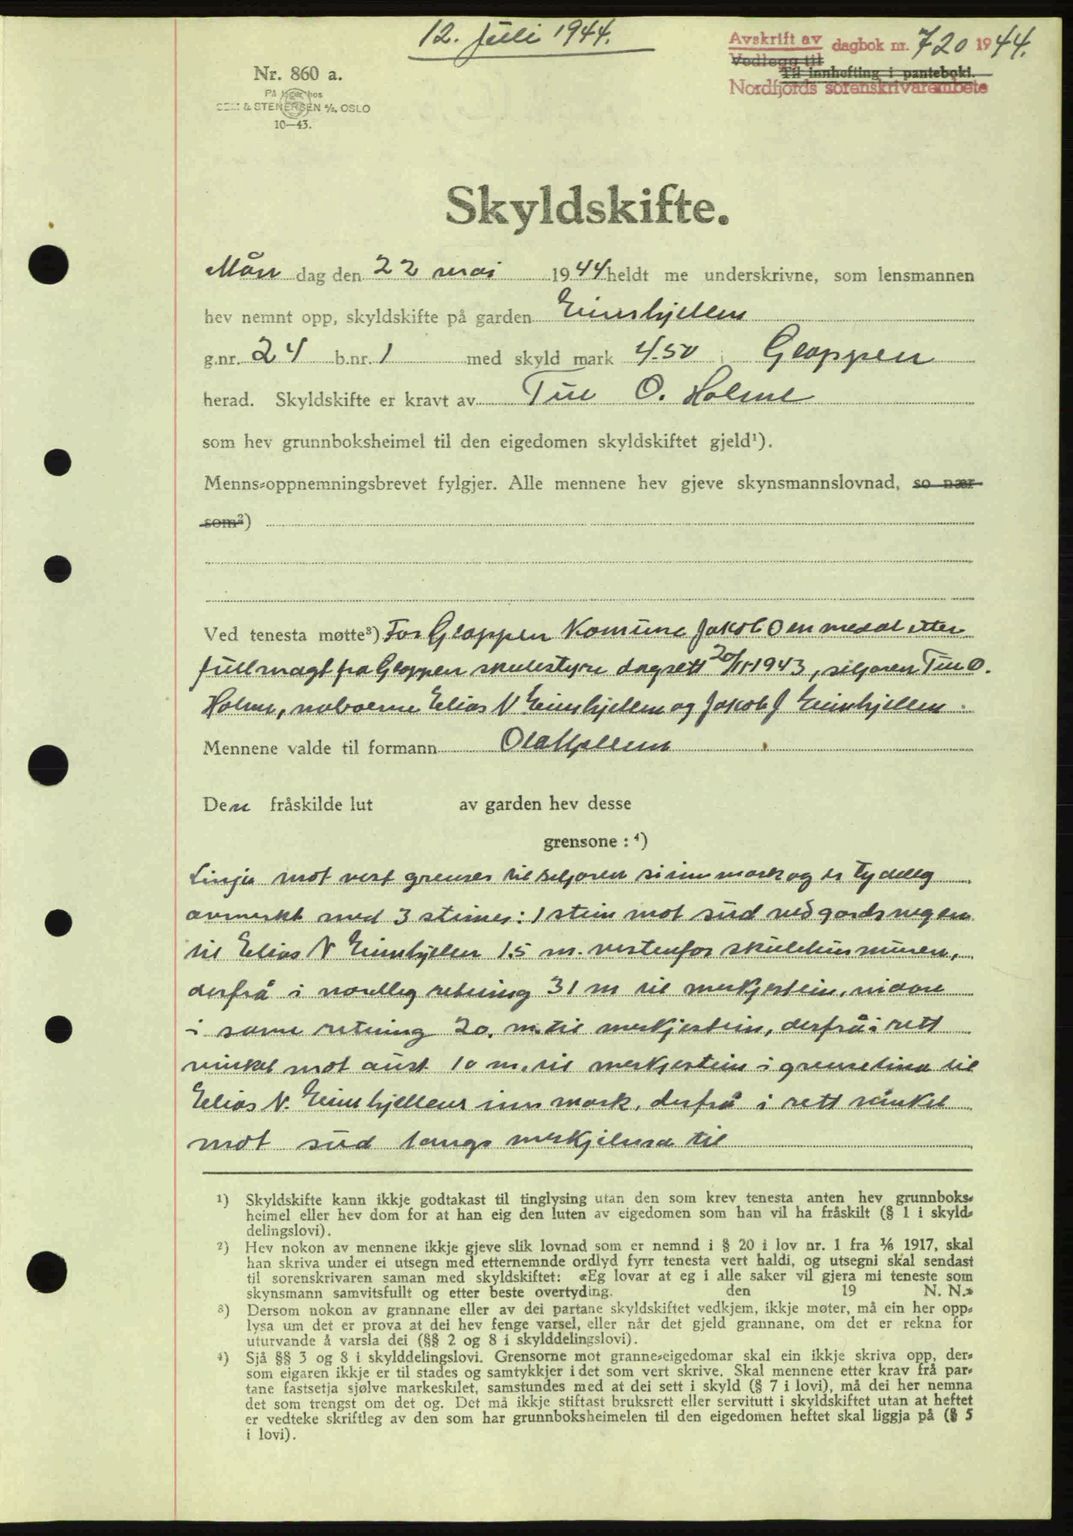 12. Juli 1944.
Avskrift av dagbok nr. 720 1944.
Vedlegg til
Til innhefting i pantebokl.
Nordfjords sorenskrivarembete
Nr. 860 a.
På lager hos
SEM & STENERSEN A/S, OSLO
10—43.
Skyldskifte.
Mån dag den 22 mai 1944 heldt me underskrivne, som lensmannen
hev nemnt opp, skyldskifte på garden Eimhjellen
g.nr. 24 b.nr. 1 med skyld mark 4.50 i Gloppen
herad. Skyldskifte er kravt av O. Holme
som hev grunnboksheimel til den eigedomen skyldskiftet gjeld¹).
Menns-oppnemningsbrevet fylgjer. Alle mennene hev gjeve skynsmannslovnad, so nær
som²)
Ved tenesta møtte³) For Gloppen Komune Jakob Ommedal etter
fullmagt fra Gloppen skulestyre dagsett 20/11-1943, seljaren O.
Holme, naboerne Elias N Eimhjellen og Jakob J Eimhjellen.
Mennene valde til formann Ola Hjellum
Den fråskilde lut av garden hev desse
grensone : ⁴)
Linja mot vest grenser til seljaren si innmark og er tydeleg
avmerkt med 3 steiner: 1 stein mot sud ved gardsvegen
til Elias N Eimhjellen 1.5 m. vestenfor skulehusmuren,
derfrå i nordleg retning 31 m til merkjestein, vidare
i same retning 20. m. til merkjestein, derfrå i rett
vinkel mot aust 10 m. til merkjestein i grenselina til
Elias N. Eimhjellens innmark, derfrå i rett vinkel
mot sud langs merkjelina til
¹) Skyldskifte kann ikkje godtakast til tinglysing utan den som krev tenesta anten hev grunnboks-
heimel eller hev dom for at han eig den luten av eigedomen som han vil ha fråskilt (§ 1 i skyld-
delingslovi).
²) Hev nokon av mennene ikkje gjeve slik lovnad som er nemnd i § 20 i lov nr. 1 fra 1/6 1917, skal
han skriva under ei utsegn med etternemnde ordlyd fyrr tenesta vert haldi, og utsegni skal sendast
til sorenskrivaren saman med skyldskiftet: «Eg lovar at eg i alle saker vil gjera mi teneste som
skynsmann samvitsfullt og etter beste overtyding. den 19 N. N.»
³) Dersom nokon av grannane eller av dei partane skyldskiftet vedkjem, ikkje møter, må ein her opp-
lysa um det er prova at dei hev fenge varsel, eller når det gjeld grannane, om det er rekna for
uturvande å varsla dei (§§ 2 og 8 i skylddelingslovi).
⁴) Sjå §§ 3 og 8 i skylddelingslovi. Grensorne mot granne-eigedomar skal ein ikkje skriva opp, der-
som eigaren ikkje er til stades og samtykkjer i det som vert skrive. Skal mennene etter krav frå par-
tane fastsetja sjølve markeskilet, samstundes med at dei sett i skyld (§ 7 i lovi), må dei her nemna
det som trengst om det og. Det må ikkje stiftast bruksrett eller servitutt i skyldskiftet utan at heftet
er vedteke skriftleg av den som har grunnboksheimelen til den eigedomen heftet skal liggja på (§ 5
i lovi).